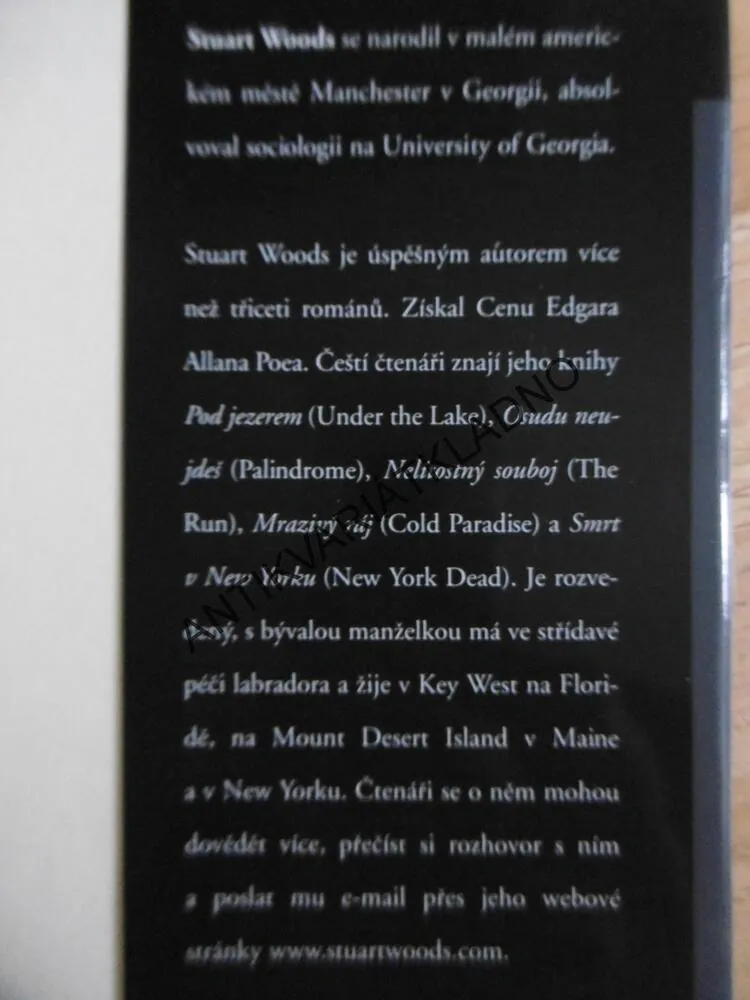 Stuart Woods se narodil v malém americ-
kém městě Manchester v Georgii, absol-
voval sociologii na University of Georgia.
Stuart Woods je úspěšným autorem více
než třiceti románů. Získal Cenu Edgara
Allana Poea. Čeští čtenáři znají jeho knihy
Pod jezerem (Under the Lake), Osudu neu-
jdeš (Palindrome), Nelítostný souboj (The
Run), Mrazivý ráj (Cold Paradise) a Smrt
v New Yorku (New York Dead). Je rozve-
dený, s bývalou manželkou má ve střídavé
péči labradora a žije v Key West na Flori-
dě, na Mount Desert Island v Maine
a v New Yorku. Čtenáři se o něm mohou
dovědět více, přečíst si rozhovor s ním
a poslat mu e-mail přes jeho webové
stránky www.stuartwoods.com.
ANTIKVARIATKLADNO